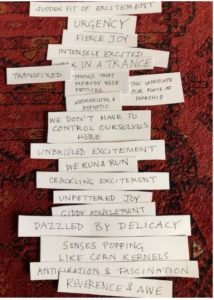 SUDDEN FIT OF EXCITEMENT
URGENCY
FIERCE JOY
INTENSELY EXCITED
IN A TRANCE
TRANSFIXED
THINGS THAT
NOBODY ELSE
NOTICES
THE LANDSCAPE
OUR PLACE OF
WORSHIP
MESMERISING &
HYPNOTIC
WE DON'T HAVE TO
CONTROL OURSELVES
HERE
UNBRIDLED EXCITEMENT
WE RUN & RUN
CRACKLING EXCITEMENT
UNFETTERED JOY
GIDDY AMAZEMENT
DAZZLED BY DELICACY
SENSES POPPING
LIKE CORN KERNELS
ANTICIPATION & FASCINATION
REVERENCE & AWE